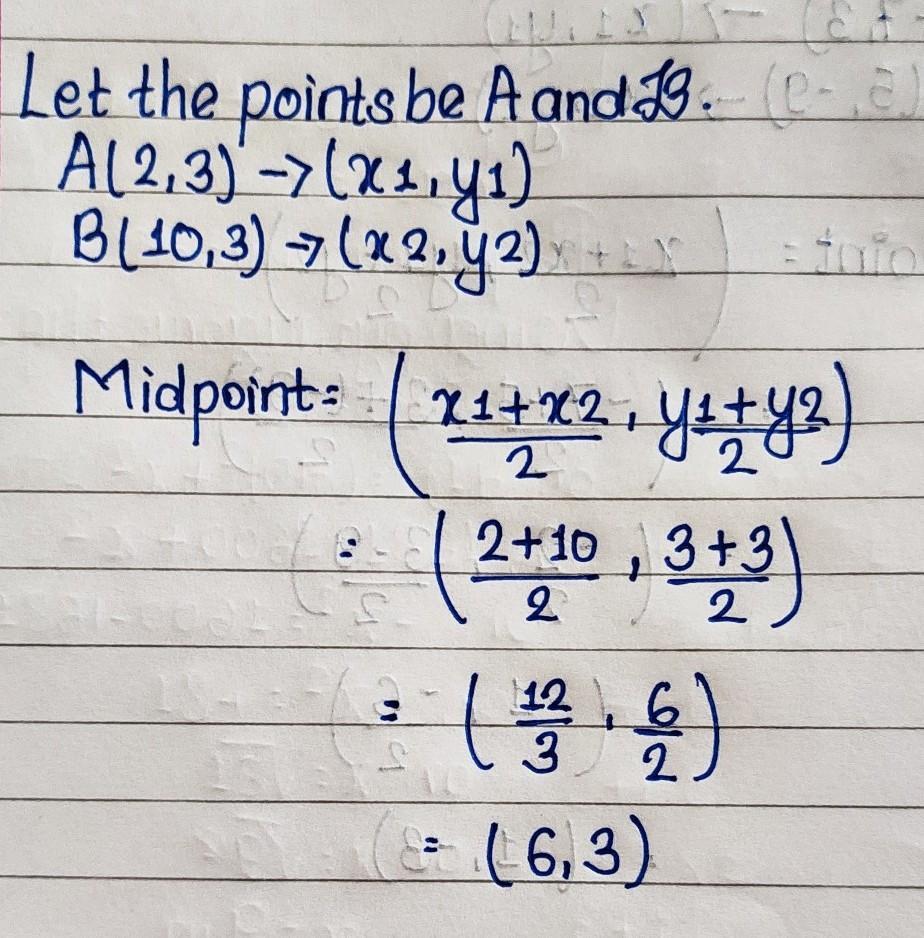 Let the points be A and B.
A(2,3) → (x1, y1)
B(10,3) → (x2, y2)
Midpoint = ( x1+x2 / 2 , y1+y2 / 2 )
= ( 2+10 / 2 , 3+3 / 2 )
= ( 12 / 3 , 6 / 2 )
= (6,3)